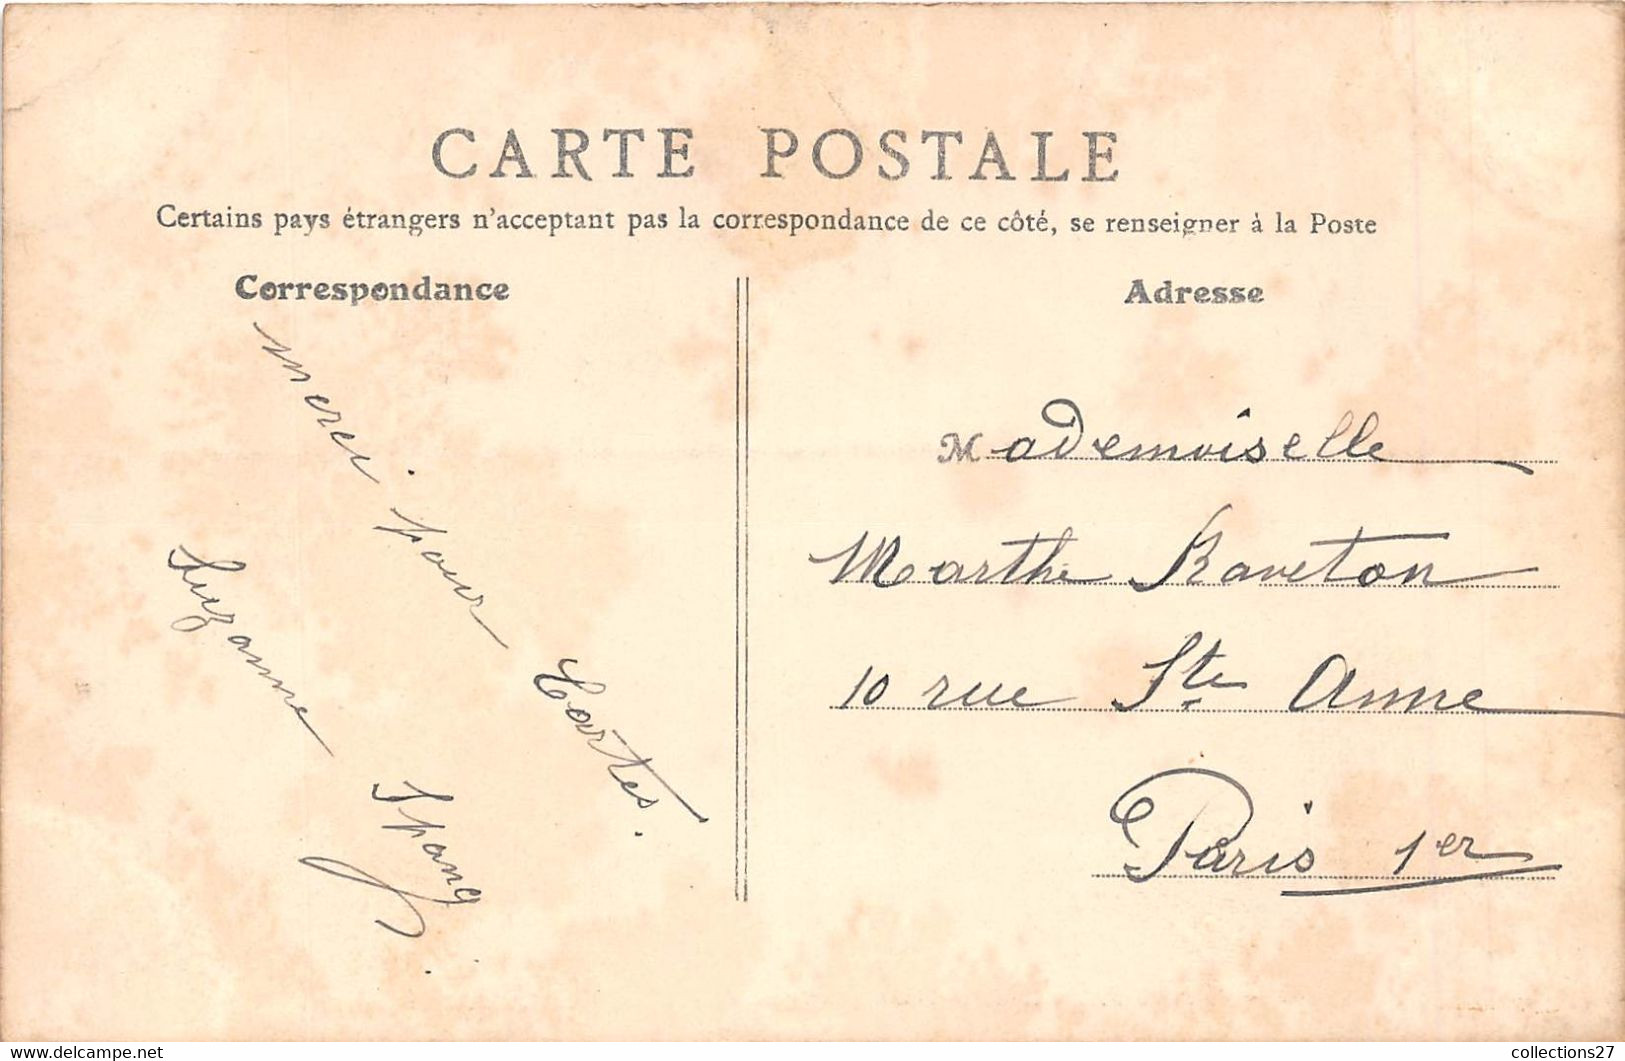 CARTE POSTALE
Certains pays étrangers n'acceptant pas la correspondance de ce côté, se renseigner à la Poste
Correspondance
merci pour Cartes.
Suzanne Spang
Adresse
Mademoiselle
Marthe Raveton
10 rue Ste Anne
Paris 1er
collections27